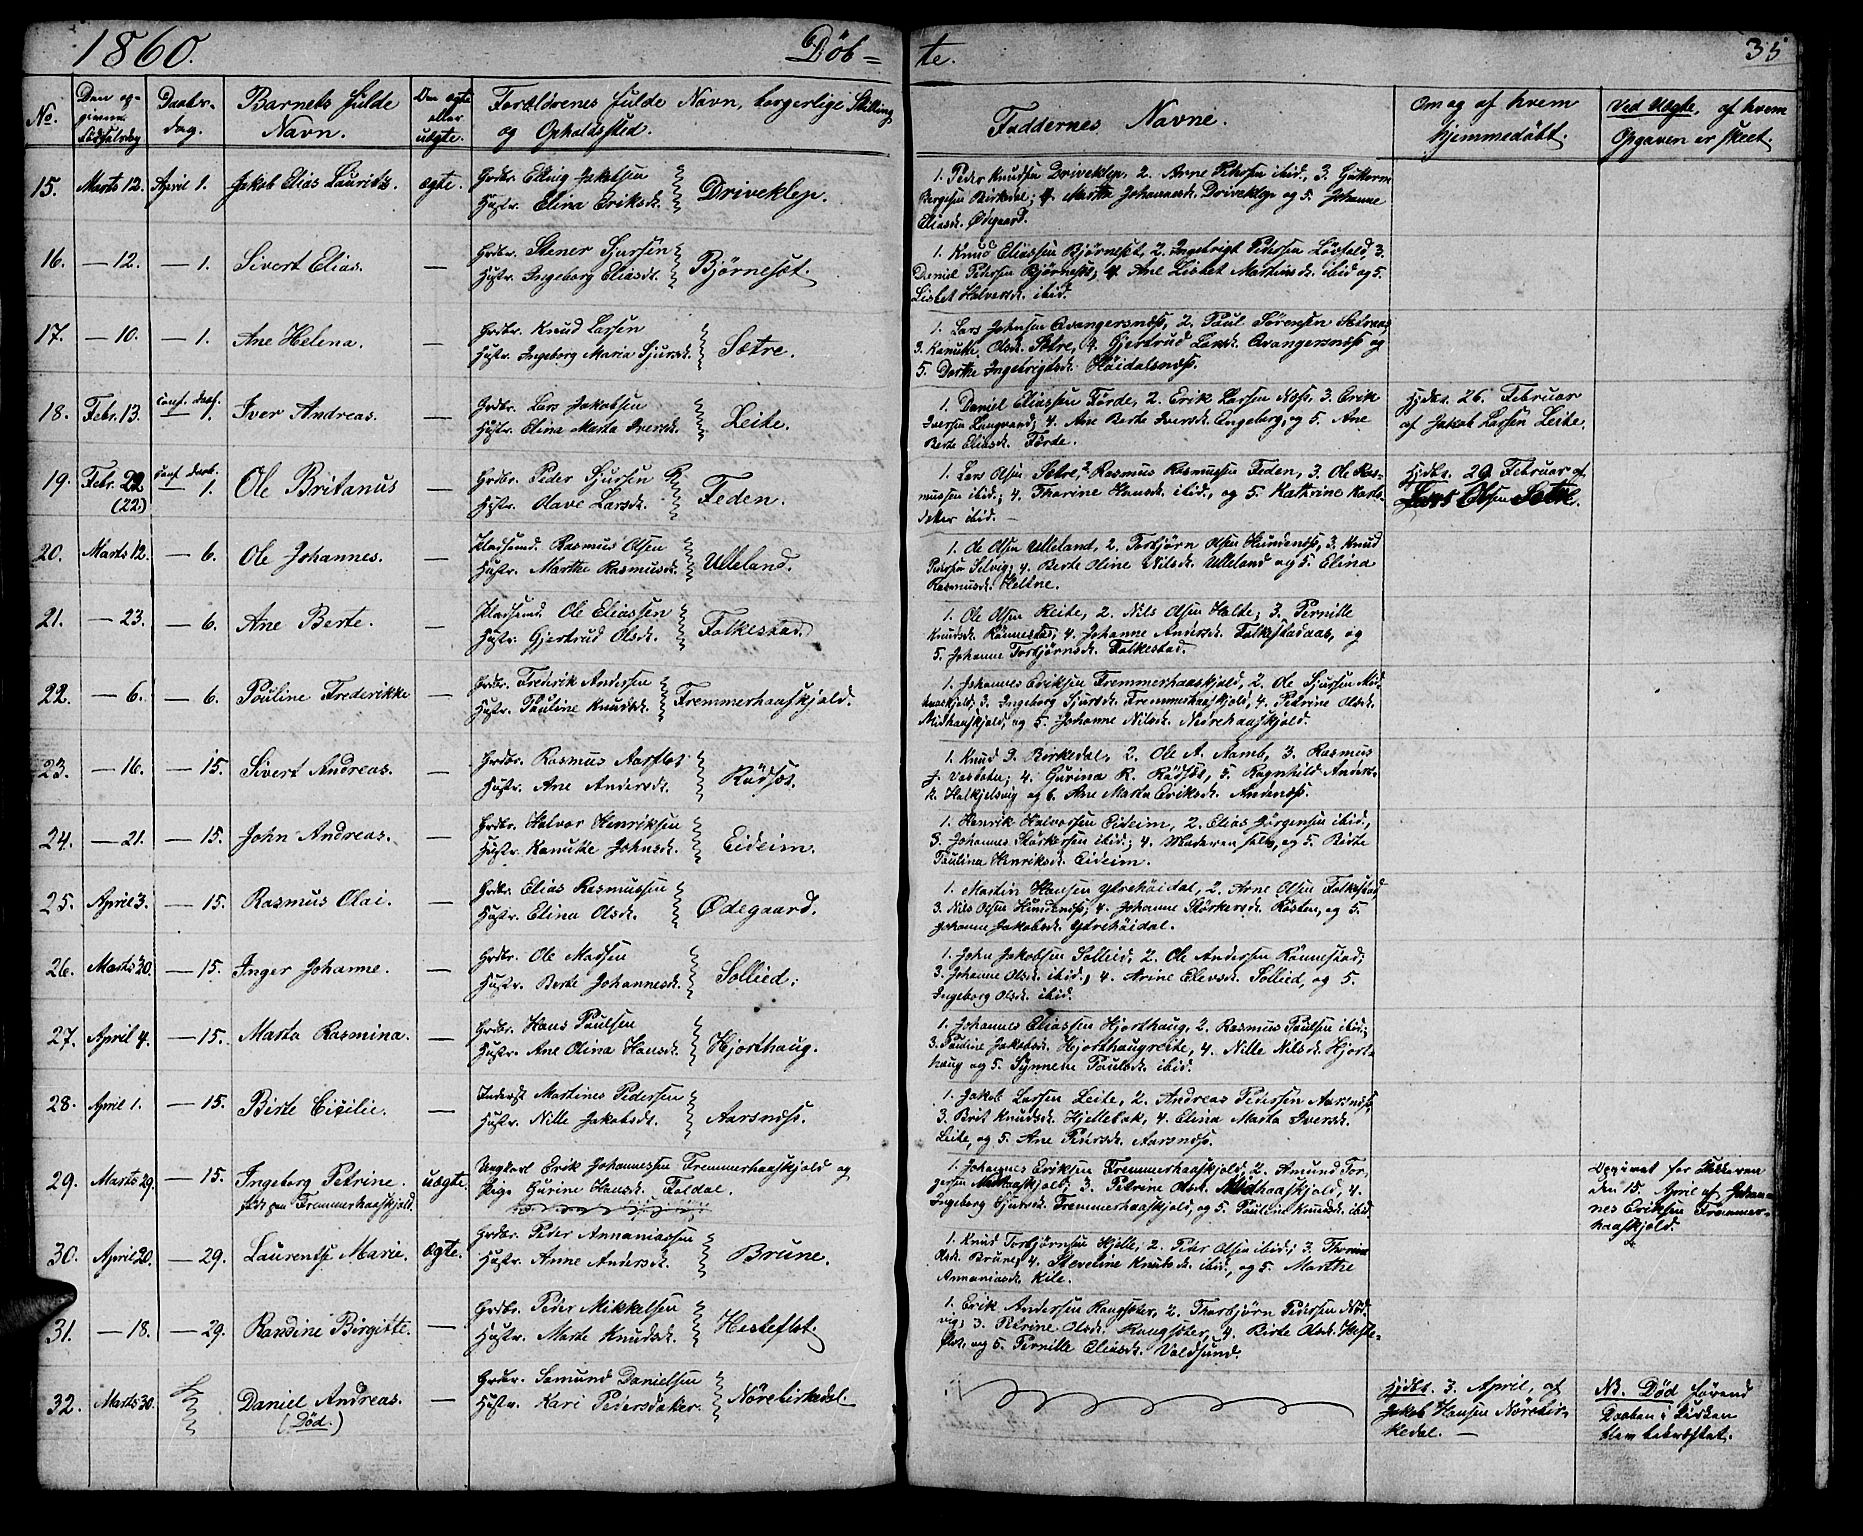 1860.
Døb=
te.
35
No.
Den op-
givne
Fødselsdag
Daabs-
dag.
Barnets fulde
Navn.
Om ægte
eller
uægte.
Forældrenes fulde Navn, borgerlige Stilling
og Opholdssted.
Faddernes Navne.
Om og af hvem
hjemmedøbt.
Ved Uægte, af hvem
Opgaven er skeet.
15. Marts 12. April 1. Jakob Elias Laurits. ægte.
Grdbr. Elling Jakobsen
Hustr. Elina Eriksdt. Driveklep.
1. Peder Knudsen Driveklep, 2. Arne Petersen ibid., 3. Guttorm
Bergesen Birkedal; 4. Marthe Johannesdt. Driveklep og 5. Johanne
Eliasdt. Ødegaard.
16. — 12. — 1. Sivert Elias. —
Grdbr. Stener Sjursen
Hustr. Ingeborg Eliasdt. Bjørneset.
1. Knud Eliassen Bjørneset, 2. Ingebrigt Petersen Løvfald, 3.
Daniel Petersen Bjørneset; 4. Ane Lisbet Martinusdt. ibid og 5.
Lisbet Halvorsdt. ibid.
17. — 10. — 1. Ane Helena. —
Grdbr. Knud Larsen
Hustr. Ingeborg Maria Sjursdt. Sætre.
1. Lars Johnsen Qvangersnæss, 2. Paul Sørensen Sætreaas
3. Kanutte Olsdt. Sætre, 4. Gjertrud Larsdt. Qvangersnæss og
5. Dorthe Ingebrigtsdt. Høidalsnæss.
18. Febr. 13. conf. daab. — 1. Iver Andreas. —
Grdbr. Lars Jakobsen
Hustr. Elina Marta Iversdt. Leite.
1. Daniel Eliassen Førde, 2. Erik Larsen Næss, 3. Erik
Iversen Langvand; 4. Ane Berte Iversdt. Engeberg, og 5. Ane
Berte Eliasdt. Førde.
Hjdbt. 26. Februar
af Jakob Larsen Leite.
19. Febr. 22
(22) conf. daab. — 1. Ole Britanus —
Grdbr. Peder Sjursen R
Hustr. Olave Larsdt. Feden.
1. Lars Olsen Sætre 2. Rasmus Rasmussen Feden, 3. Ole Ras-
mussen ibid.; 4. Tharine Hansdt. ibid., og 5. Kathrine Lars
datter ibid. —
Hjdbt. 29. Februar af
Lars Olsen Sætre.
20. Marts 12. — 6. Ole Johannes. —
Pladsmd. Rasmus Olsen
Hustr. Marthe Rasmusdt. Ulleland.
1. Ole Olsen Ulleland, 2. Torbjørn Olsen Hundenæss, 3. Knud
Petersen Selvig; 4. Berte Oline Nilsdt. Ulleland og 5. Elina
Rasmusdt. Heltne.
21. — 23. — 6. Ane Berte. —
Pladsmd. Ole Eliassen
Hustr. Gjertrud Olsdt. Folkestad.
1. Ole Olsen Reite, 2. Nils Olsen Halte; 3. Pernille
Knudsdt. Rønnestad; 4. Johanne Andersdt. Folkestadaas, og
5. Johanne Torbjørnsdt. Folkestad.
22. — 6. — 6. Pouline Frederikke —
Grdbr. Frederik Andersen
Hustr. Pauline Knudsdt. Fremmerhaaskjold.
1. Johannes Eriksen Fremmerhaaskjold, 2. Ole Sjursen Mid-
haaskjold; 3. Ingeborg Sjursdt. Fremmerhaaskjold, 4. Petrine Olsdt.
Midhaaskjold, og 5. Johanne Nilsdt. Nedrehaaskjold.
23. — 16. — 15. Sivert Andreas. —
Grdbr. Rasmus Aarflot
Hustr. Ane Andersdt. Rødsæt.
1. Knud J. Birkedal, 2. Ole A. Aamb, 3. Rasmus
J. Vasbotn; 4. Gurina R. Rødsæt, 5. Ragnhild Anders-
dt. Halkjelsvig og 6. Ane Marta Eriksdt. Andenæss.
24. — 21. — 15. John Andreas. —
Grdbr. Halvor Henriksen
Hustr. Kanutte Johnsdt. Eideim.
1. Henrik Halvorsen Eideim, 2. Elias Jørgensen ibid.,
3. Johannes Størkersen ibid.; 4. Moderen selv, og 5. Berte
Paulina Henriksdt. Eideim.
25. April 3. — 15. Rasmus Olai. —
Grdbr. Elias Rasmussen
Hustr. Elina Olsdt. Ødegaard.
1. Martin Hansen Ytrehøidal, 2. Arne Olsen Folkestad,
3. Nils Olsen Hundenæss; 4. Johanne Størkersdt. Røsten, og 5.
Johanne Jakobsdt. Ytrehøidal.
26. Marts 30. — 15. Inger Johanne. —
Grdbr. Ole Madsen
Hustr. Berte Johannesdt. Sollied.
1. John Jakobsen Sollied, 2. Ole Andersen Rønnestad;
3. Johanne Olsdt. ibid., 4. Arine Elevsdt. Sollied, og 5.
Ingeborg Olsdt. ibid.
27. April 4. — 15. Marta Rasmina. —
Grdbr. Hans Paulsen
Hustr. Ane Olina Hansdt. Hjorthaug.
1. Johannes Eliassen Hjorthaug, 2. Rasmus Paulsen ibid.;
3. Pauline Jakobsdt. Hjorthaugreite, 4. Nille Nilsdt. Hjort-
haug og 5. Synneve Paulsdt. ibid.
28. April 1. — 15. Birte Cicilie. —
Inderst Martines Pedersen
Hustr. Nille Jakobsdt. Aarsnæss.
1. Jakob Larsen Leite, 2. Andreas Pedersen Aarsnæss,
3. Brit Knudsdt. Hjellebak, 4. Elina Marta Iversdt.
Leite, og 5. Ane Petersdt. Aarsnæss.
29. Marts 29. — 15. Ingeborg Petrine.
født paa Fremmerhaaskjold. uægte.
Ungkarl Erik Johannessen Fremmerhaaskjold og
Pige Gurine Hansdt. Foldal.
1. Johannes Eriksen Fremmerhaaskjold, 2. Amund Tor-
gersen Midhaaskjold; 3. Petrine Olsdt. Midhaaskjold, 4.
Ingeborg Sjursdt. Fremmerhaaskjold, og 5. Pauline Knudsdt. ibid
Opgivet for Faderen
den 15. April af Johan-
nes Eriksen Fremmer-
haaskjold.
30. April 20. — 29. Laurentse Marie. ægte.
Grdbr. Peter Annaniassen
Hustr. Anne Andersdt. Brune.
1. Knud Torbjørnsen Hjelle, 2. Peter Olsen ibid; 3. Thorine
Olsdt. Brune, 4. Steveline Knutsdt. ibid., og 5. Marthe
Annaniasdt. Kile.
31. — 18. — 29. Randine Birgitte. —
Grdbr. Peder Mikkelsen
Hustr. Marte Knudsdt. Hesteflot.
1. Erik Andersen Rangsæter, 2. Thorbjørn Pedersen Nød-
vig; 3. Petrine Olsdt. Rangsæter, 4. Birte Olsdt. Heste-
flot, og 5. Pernille Eliasdt. Voldsund.
32. Marts 30. Daniel Andreas.
(Død.) —
Grdbr. Samund Danielsen
Hustr. Kari Pedersdatter. Nørebirkedal
Hjdbt. 3. April, af
Jakob Hansen Nørebir-
kedal. —
NB. Død førend
Daaben i Kirken
blev bekræftet.